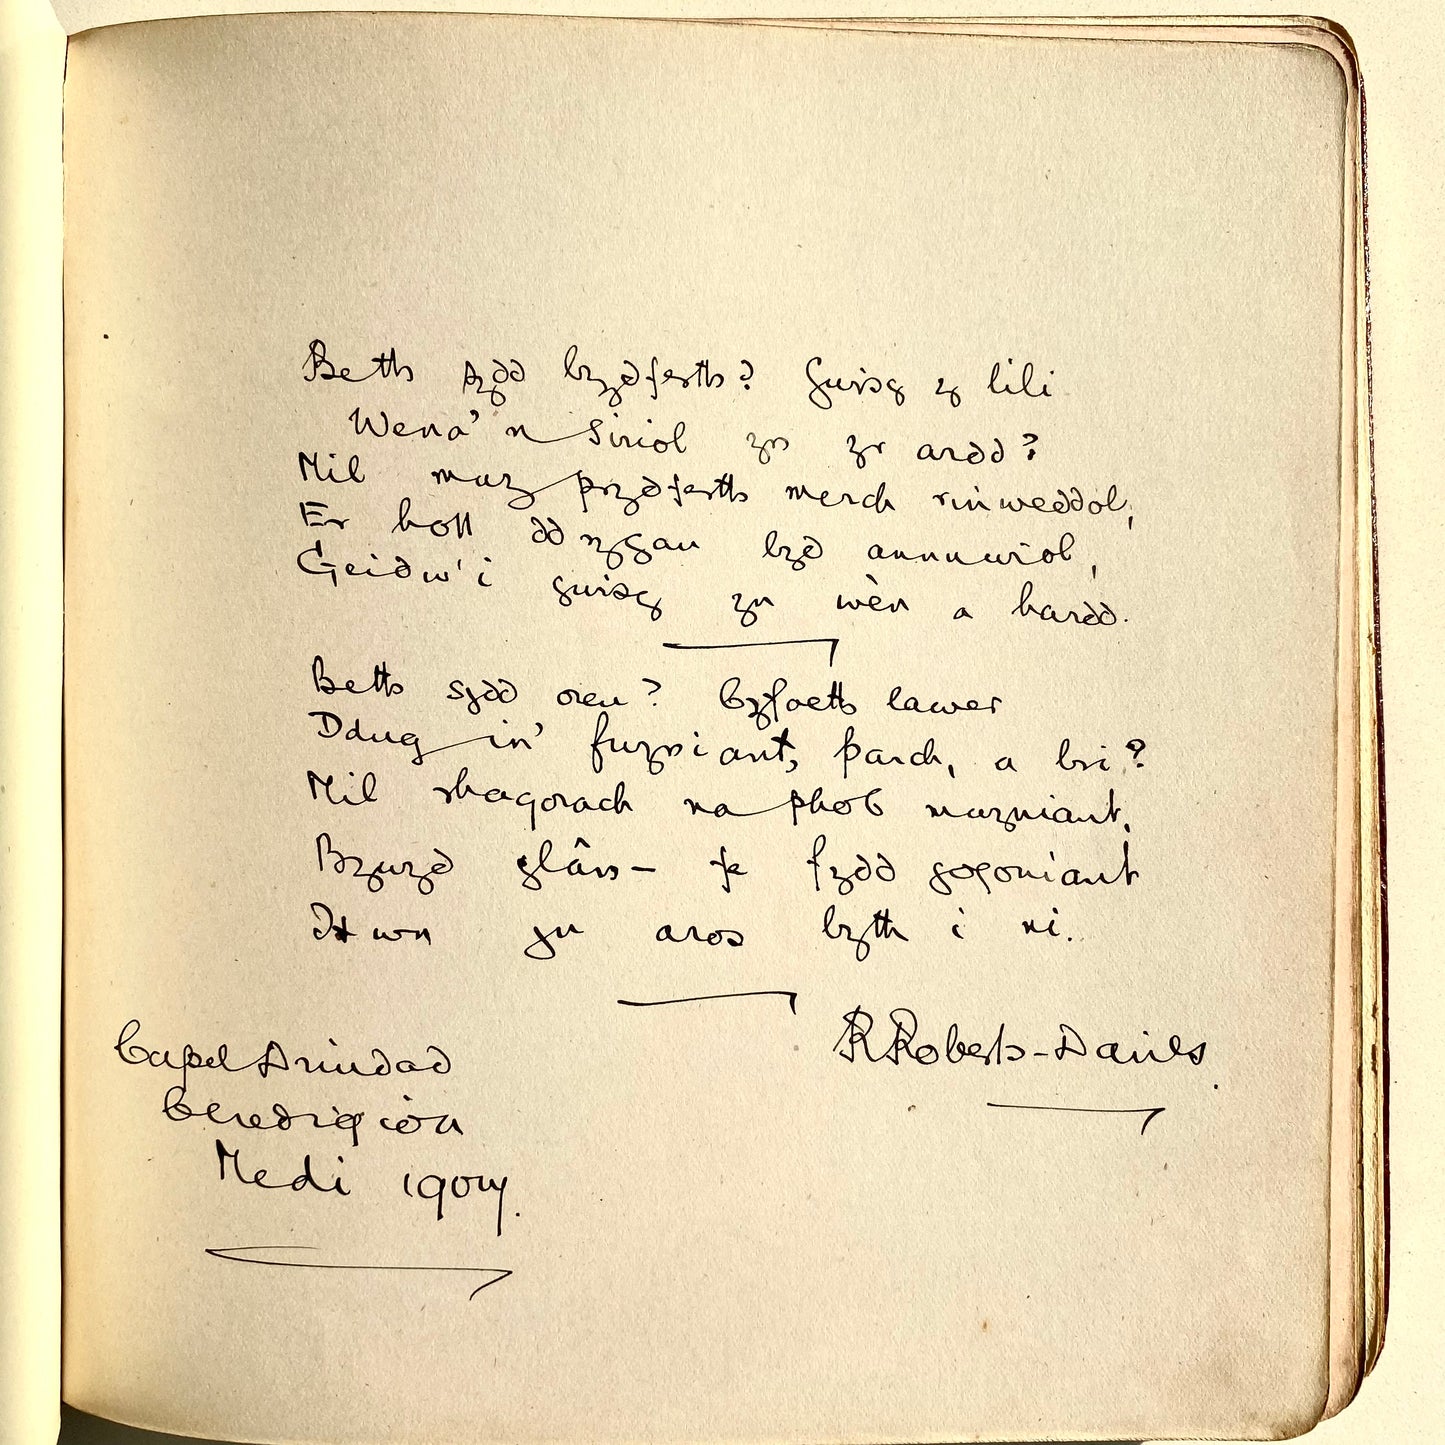 Beth sydd brydferth? Gwisg y lili
Wena'n siriol yn yr ardd?
Mil mwy prydferth merch rinweddol,
Er holl ddrygau byd annuwiol,
Geidw'i gwisg yn wèn a hardd.
Beth sydd oreu? Cyfoeth lawer
Ddwg in' fwyniant, parch, a bri?
Mil rhagorach na phob mwyniant,
Bywyd glân— fe fydd gogoniant
Hwn yn aros byth i ni.
R Roberts-Davies.
Capel Drindod
Ceredigion
Medi 1904.